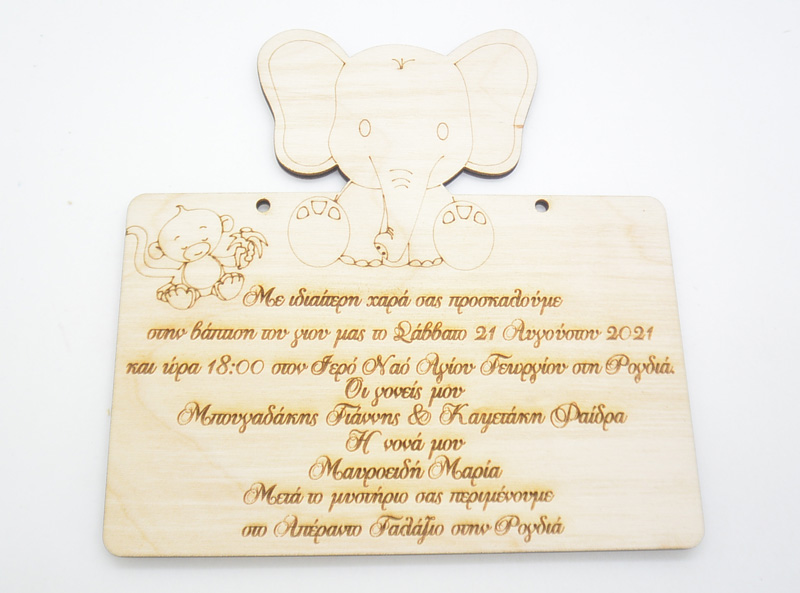 Με ιδιαίτερη χαρά σας προσκαλούμε
στην βάπτιση του γιου μας το Σάββατο 21 Αυγούστου 2021
και ώρα 18:00 στον Ιερό Ναό Αγίου Γεωργίου στη Ρογδιά.
Οι γονείς μου
Μπουγαδάκης Γιάννης & Καγετάκη Φαίδρα
Η νονά μου
Μαυροειδή Μαρία
Μετά το μυστήριο σας περιμένουμε
στο Απέραντο Γαλάζιο στην Ρογδιά